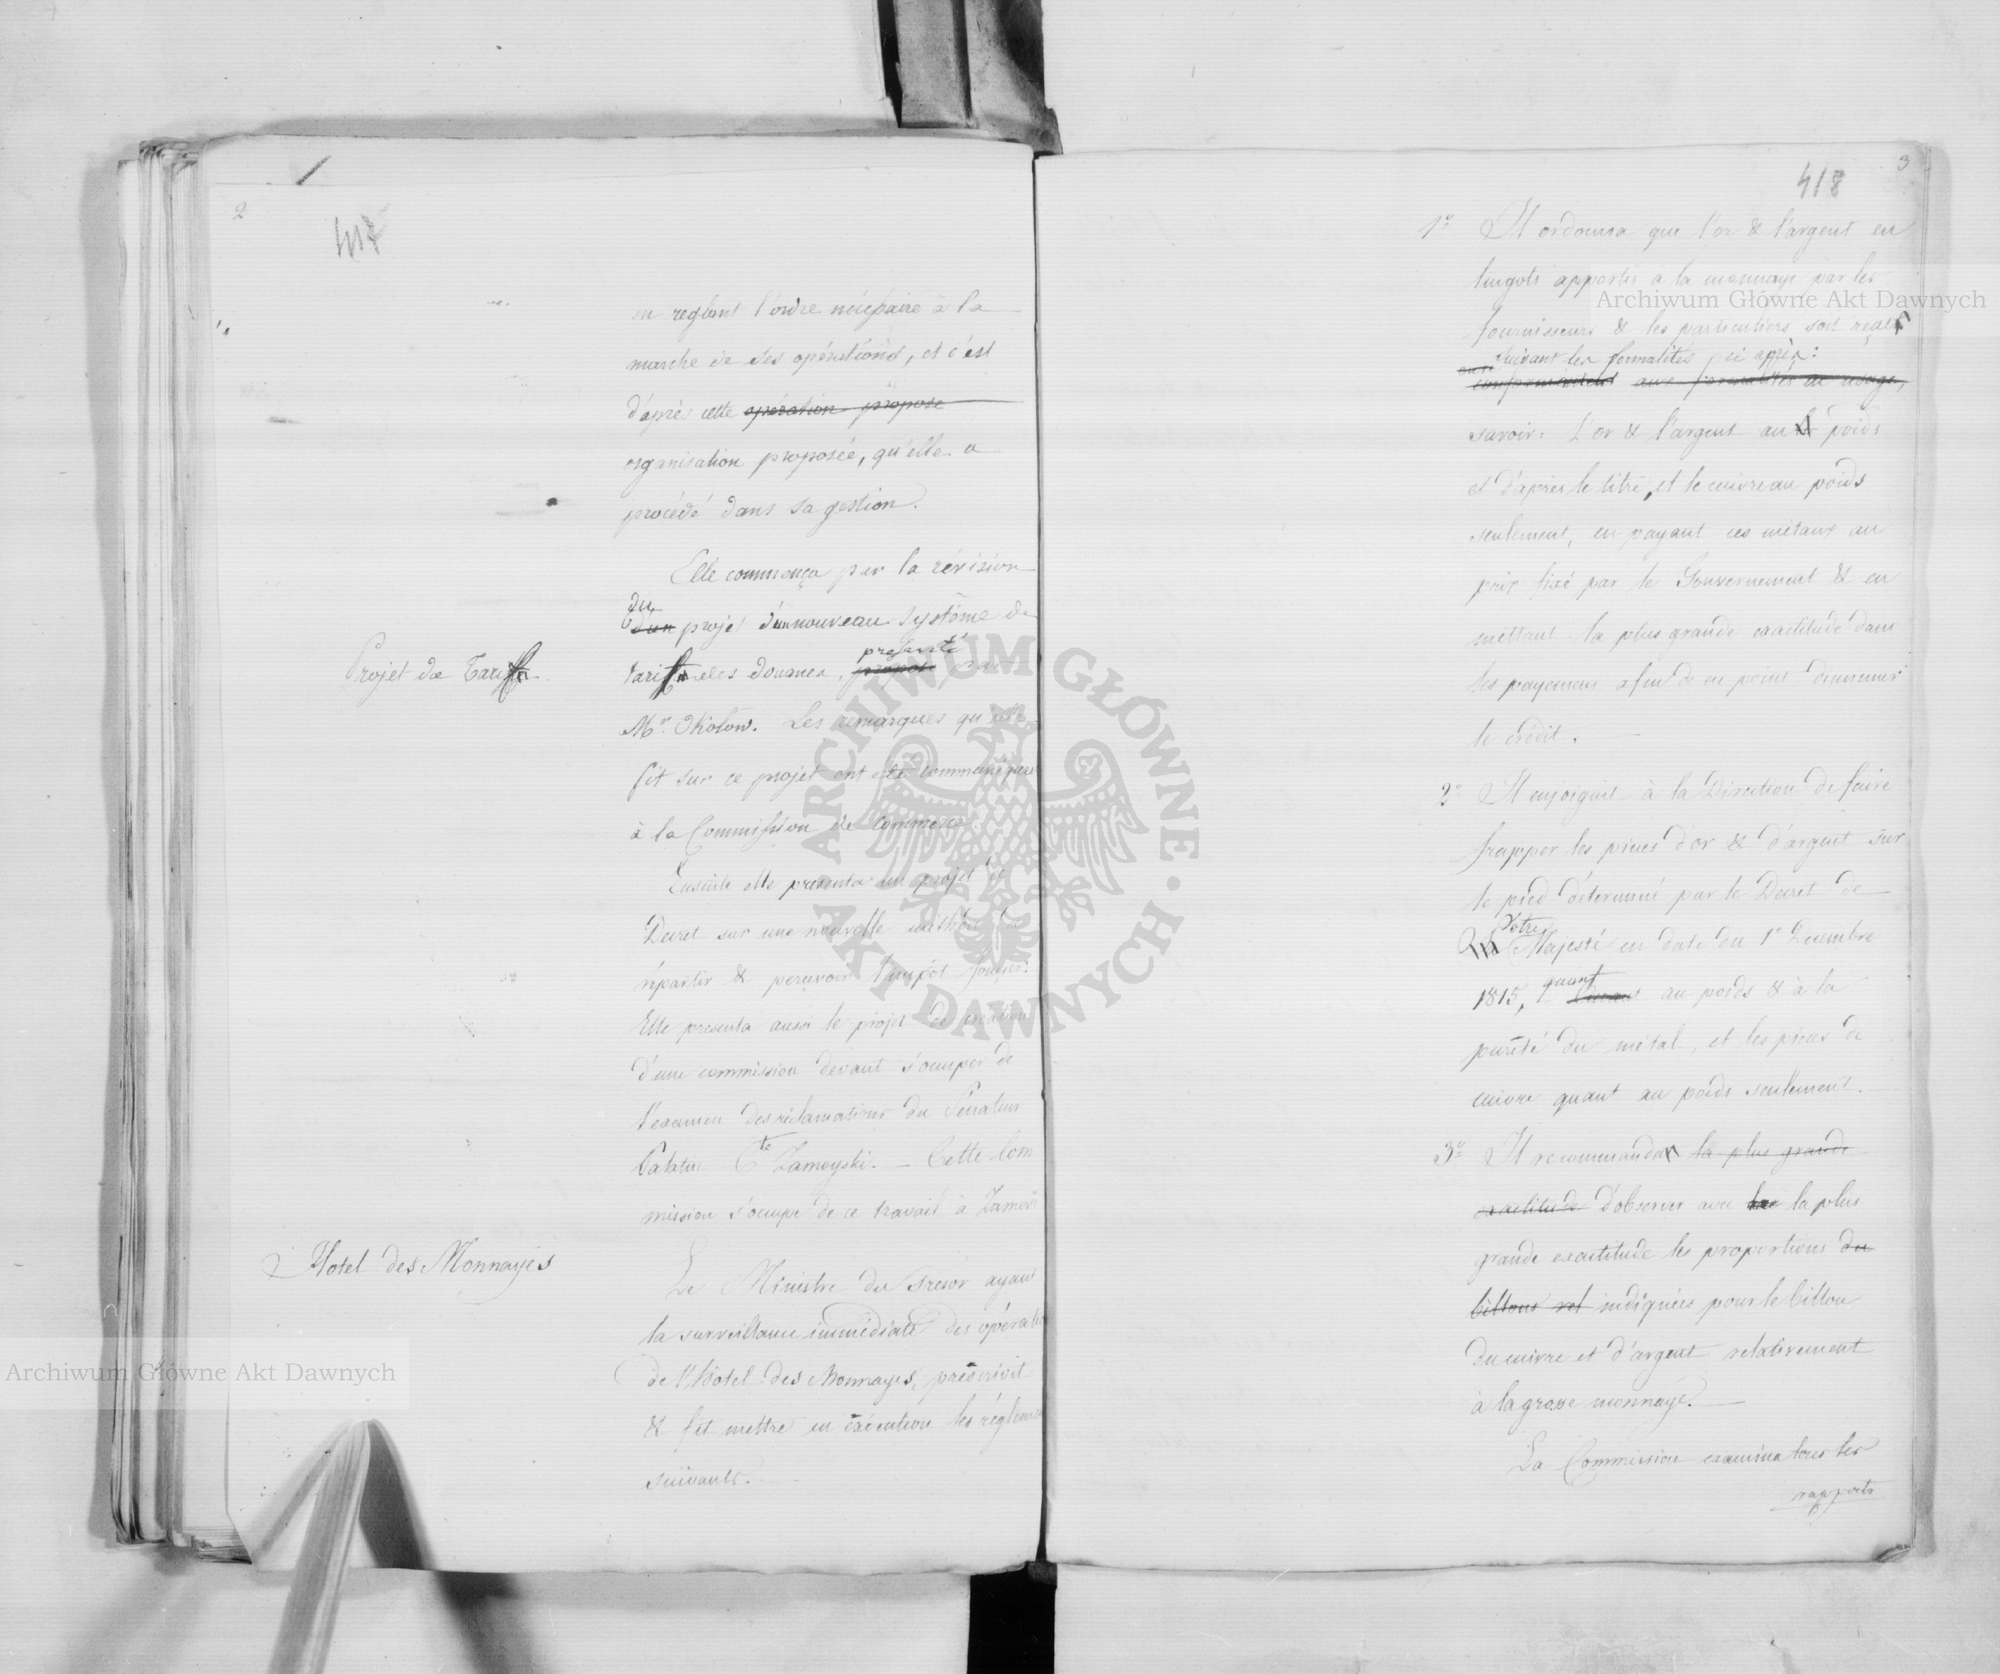 2
417
en reglant l'ordre nécessaire à la
marche de ses opérations, et c'est
d'après cette opération propose
organisation proposée, qu'elle a
procédé dans sa gestion.
Elle commença par la révision
du
d'un projet d'un nouveau système de
Projet de Tariffe.
presenté
tariffe des douanes, proposé par
Mr. Okolow. Les remarques qu'elle
fit sur ce projet ont été communiquées
à la Commission de Commerce
Ensuite elle presenta un projet de
Decret sur une nouvelle méthode de
répartir & percevoir l'impôt foncier:
Elle presenta aussi le projet de création
d'une commission devant s'occuper de
l'examen des réclamations du Senateur
Palatin Cte Zamoyski. — Cette Com
mission s'occupe de ce travail à Zamość
Hotel des Monnayes
Le Ministre du Tresor ayant
la surveillance immédiate des opérations
de l'Hotel des Monnayes, prescrivit
& fit mettre en exécution les réglemens
suivants. —
3
418
1o Il ordonna que l'or & l'argent en
lingots apportés à la monnaye par les
fournisseurs & les particuliers soit reçu
suivant les formalités ci après:
conformément aux formalités en usage,
savoir: L'or & l'argent au poids
et d'après le titre, et le cuivre au poids
seulement, en payant ces métaux au
prix fixé par le Gouvernement & en
mettant la plus grande exactitude dans
les payemens afin de ne point diminuer
le crédit. —
2o Il enjoignit à la Direction de faire
frapper les pieces d'or & d'argent sur
le pied déterminé par le Decret de
Votre
Sa Majesté en date du 1r Decembre
quant
1815, au poids & à la
pureté du métal, et les pieces de
cuivre quant au poids seulement. —
3o Il recommanda la plus grande
exactitude d'observer avec la plus
grande exactitude les proportions du
billons indiquées pour le billon
du cuivre et d'argent relativement
à la grosse monnaye. —
La Commission examina tous les
rapports
Archiwum Główne Akt Dawnych
Archiwum Główne Akt Dawnych
ARCHIWUM GŁÓWNE AKT DAWNYCH